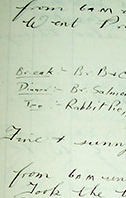 from 6am
Went
Break :- B. B & C
Dinner :- B. Salmon
Tea :- Rabbit Pie,
Fine & sunny
from 6am
Took the